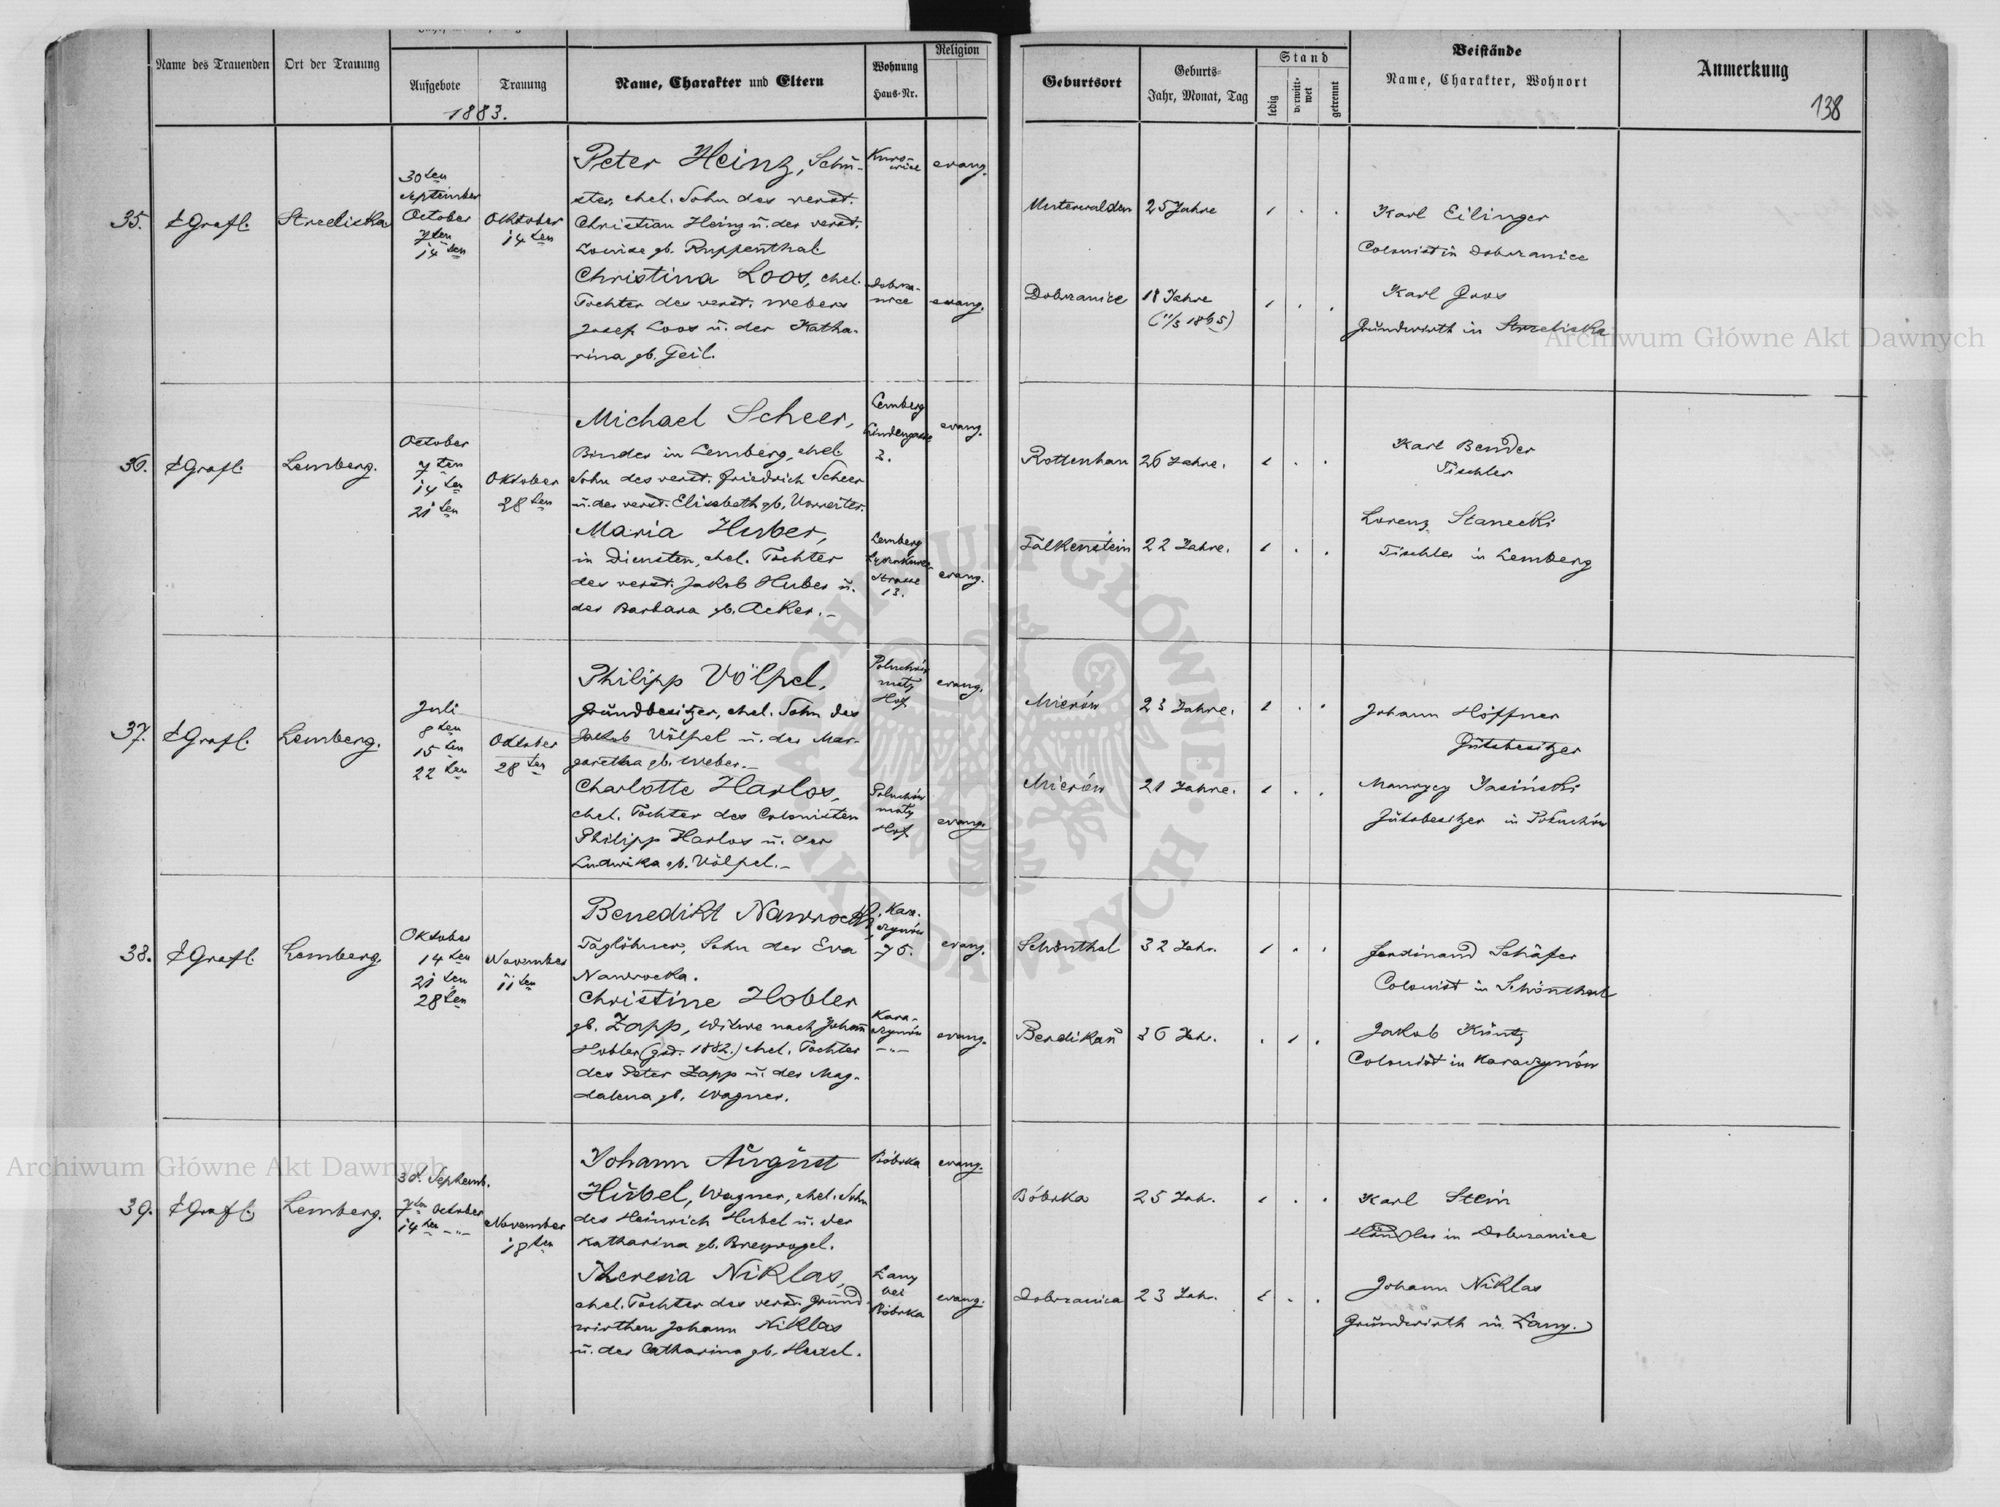 Name des Trauenden
Ort der Trauung
Aufgebote
Trauung
1883.
Name, Charakter und Eltern
Wohnung
Haus-Nr.
Religion
Geburtsort
Geburts-
Jahr, Monat, Tag
Stand
ledig
verwit-
wet
getrennt
Beistände
Name, Charakter, Wohnort
Anmerkung
138
35.
Streliska
30ten
September
October
7ten
14ten
Oktober
14ten
Peter Heinz, Schu-
ster, ehel. Sohn des verst.
Christian Heinz u. der verst.
Louise gb. Ruppenthal
Christina Loos, ehel.
Tochter des verst. Webers
Josef Loos u. der Katha-
rina gb. Geil.
Kuro-
wice
Dobrza-
nice
evang.
evang.
Unterwalden
25 Jahre
Dobrzanice
18 Jahre
(11/3 1865)
Karl Eilinger
Colonist in Dobrzanice
Karl Goos
Grundwirth in Streliska
36.
Lemberg.
October
7ten
14ten
21ten
Oktober
28ten
Michael Scheer,
Binder in Lemberg, ehel.
Sohn des verst. Friedrich Scheer
u. der verst. Elisabeth gb. Vorreiter.
Maria Huber,
in Diensten, ehel. Tochter
des verst. Jakob Huber u.
der Barbara gb. Acker.
Lemberg
Lindengasse
2.
Lemberg
Strasse
13.
evang.
evang.
Rottenhan
26 Jahre.
Falkenstein
22 Jahre.
Karl Bender
Tischler
Lorenz Stanecki
Tischler in Lemberg
37.
Lemberg.
Juli
8ten
15ten
22ten
Oktober
28ten
Philipp Völpel,
Grundbesitzer, ehel. Sohn des
Jakob Völpel u. der Mar-
garetha gb. Weber.
Charlotte Harlos,
ehel. Tochter des Colonisten
Philipp Harlos u. der
Ludwika gb. Völpel.
Poluchów
mały
Hof
Poluchów
mały
Hof
evang.
evang.
Mierów
23 Jahre.
Mierów
21 Jahre.
Johann Höffner
Gutsbesitzer
Maurycy Jasiński
Gutsbesitzer in Poluchów
38.
Lemberg
Oktober
14ten
21ten
28ten
November
11ten
Benedikt Nawrocki,
Taglöhner, Sohn der Eva
Nawrocka.
Christine Hobler
gb. Zapp, Witwe nach Johann
Hobler (gest. 1882.) ehel. Tochter
des Peter Zapp u. der Mag-
dalena gb. Wagner.
Kara-
czynów
75.
Kara-
czynów
evang.
evang.
Schönthal
32 Jahr.
36 Jahr.
Ferdinand Schäfer
Colonist in Schönthal
Jakob Küntz
Colonist in Karaczynów
39.
Lemberg.
30. Septemb.
7ten October
14ten
November
18ten
Johann August
Hubel, Wagner, ehel. Sohn
des Heinrich Hubel u. der
Katharina gb. Breyvogel.
Theresia Niklas,
ehel. Tochter des verst. Grund-
wirthen Johann Niklas
u. der Catharina gb. Hexel.
Bóbrka
Łany
bei
Bóbrka
evang.
evang.
Bóbrka
25 Jahr.
Dobrzanica
23 Jahr.
Karl Stein
Händler in Dobrzanice
Johann Niklas
Grundwirth in Łany.
Archiwum Główne Akt Dawnych
Archiwum Główne Akt Dawnych
ARCHIWUM GŁÓWNE AKT DAWNYCH